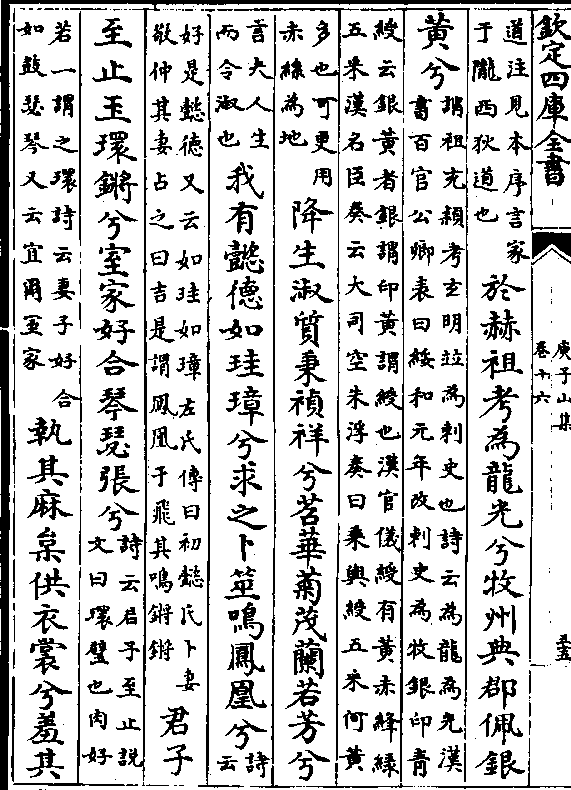 欽定四庫全書
庾子山集
卷十六
五
道注見本序言家
于隴西狄道也
於赫祖考為龍光兮牧州典郡佩銀
黃兮
謂祖充穎考玄明竝為刺史也詩云為龍為光漢
書百官公卿表曰綏和元年改刺史為牧銀印青
綬云銀黃者銀謂印黃謂綬也漢官儀綬有黃赤絳緑
五采漢名臣奏云大司空朱浮奏曰乗輿綬五采何黃
多也可更用
赤絲為地
降生淑質秉禎祥兮苕華菊茂蘭若芳兮
言夫人生
而令淑也
我有懿德如珪璋兮求之卜筮鳴鳳凰兮
詩云
好是懿徳又云如珪如璋左氏傳曰初懿氏卜妻
敬仲其妻占之曰吉是謂鳳凰于飛其鳴鏘鏘
君子
至止玉環鏘兮室家好合琴瑟張兮
詩云君子至止說
文曰環璧也肉好
若一謂之環詩云妻子好合
如鼓瑟琴又云宜爾室家
執其麻枲供衣裳兮羞其